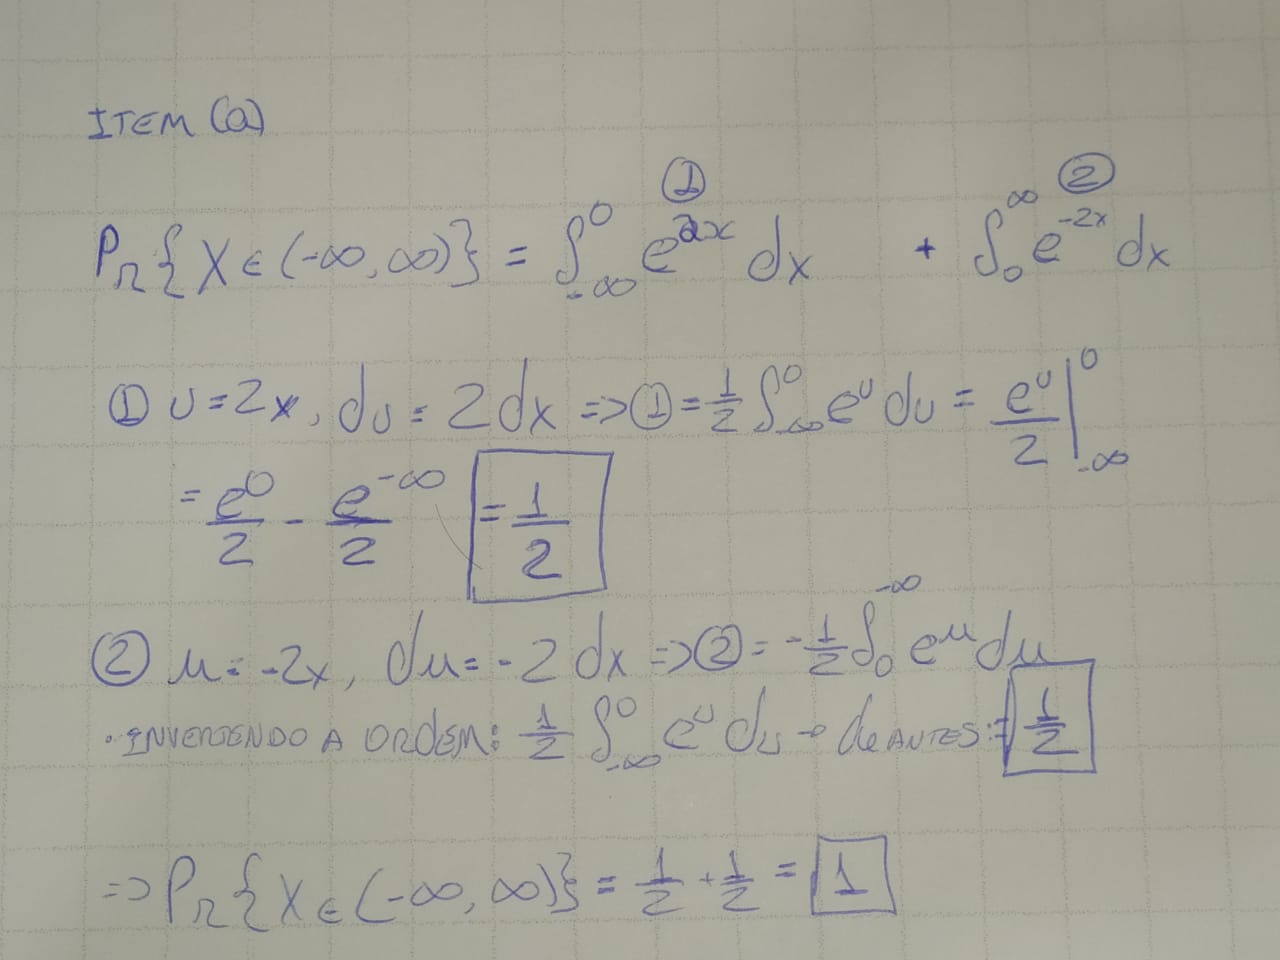 ITEM (a)
① ②
Pr{X ∈ (-∞, ∞)} = ∫_{-∞}^{0} e^{2x} dx + ∫_{0}^{∞} e^{-2x} dx
① u = 2x, du = 2dx => ① = 1/2 ∫_{-∞}^{0} e^u du = e^u/2 |_{-∞}^{0}
= e^0/2 - e^{-∞}/2 = 1/2
② u = -2x, du = -2 dx => ② = -1/2 ∫_{0}^{-∞} e^u du
· INVERTENDO A ORDEM: 1/2 ∫_{-∞}^{0} e^u du → de ANTES: = 1/2
=> Pr{X ∈ (-∞, ∞)} = 1/2 + 1/2 = 1